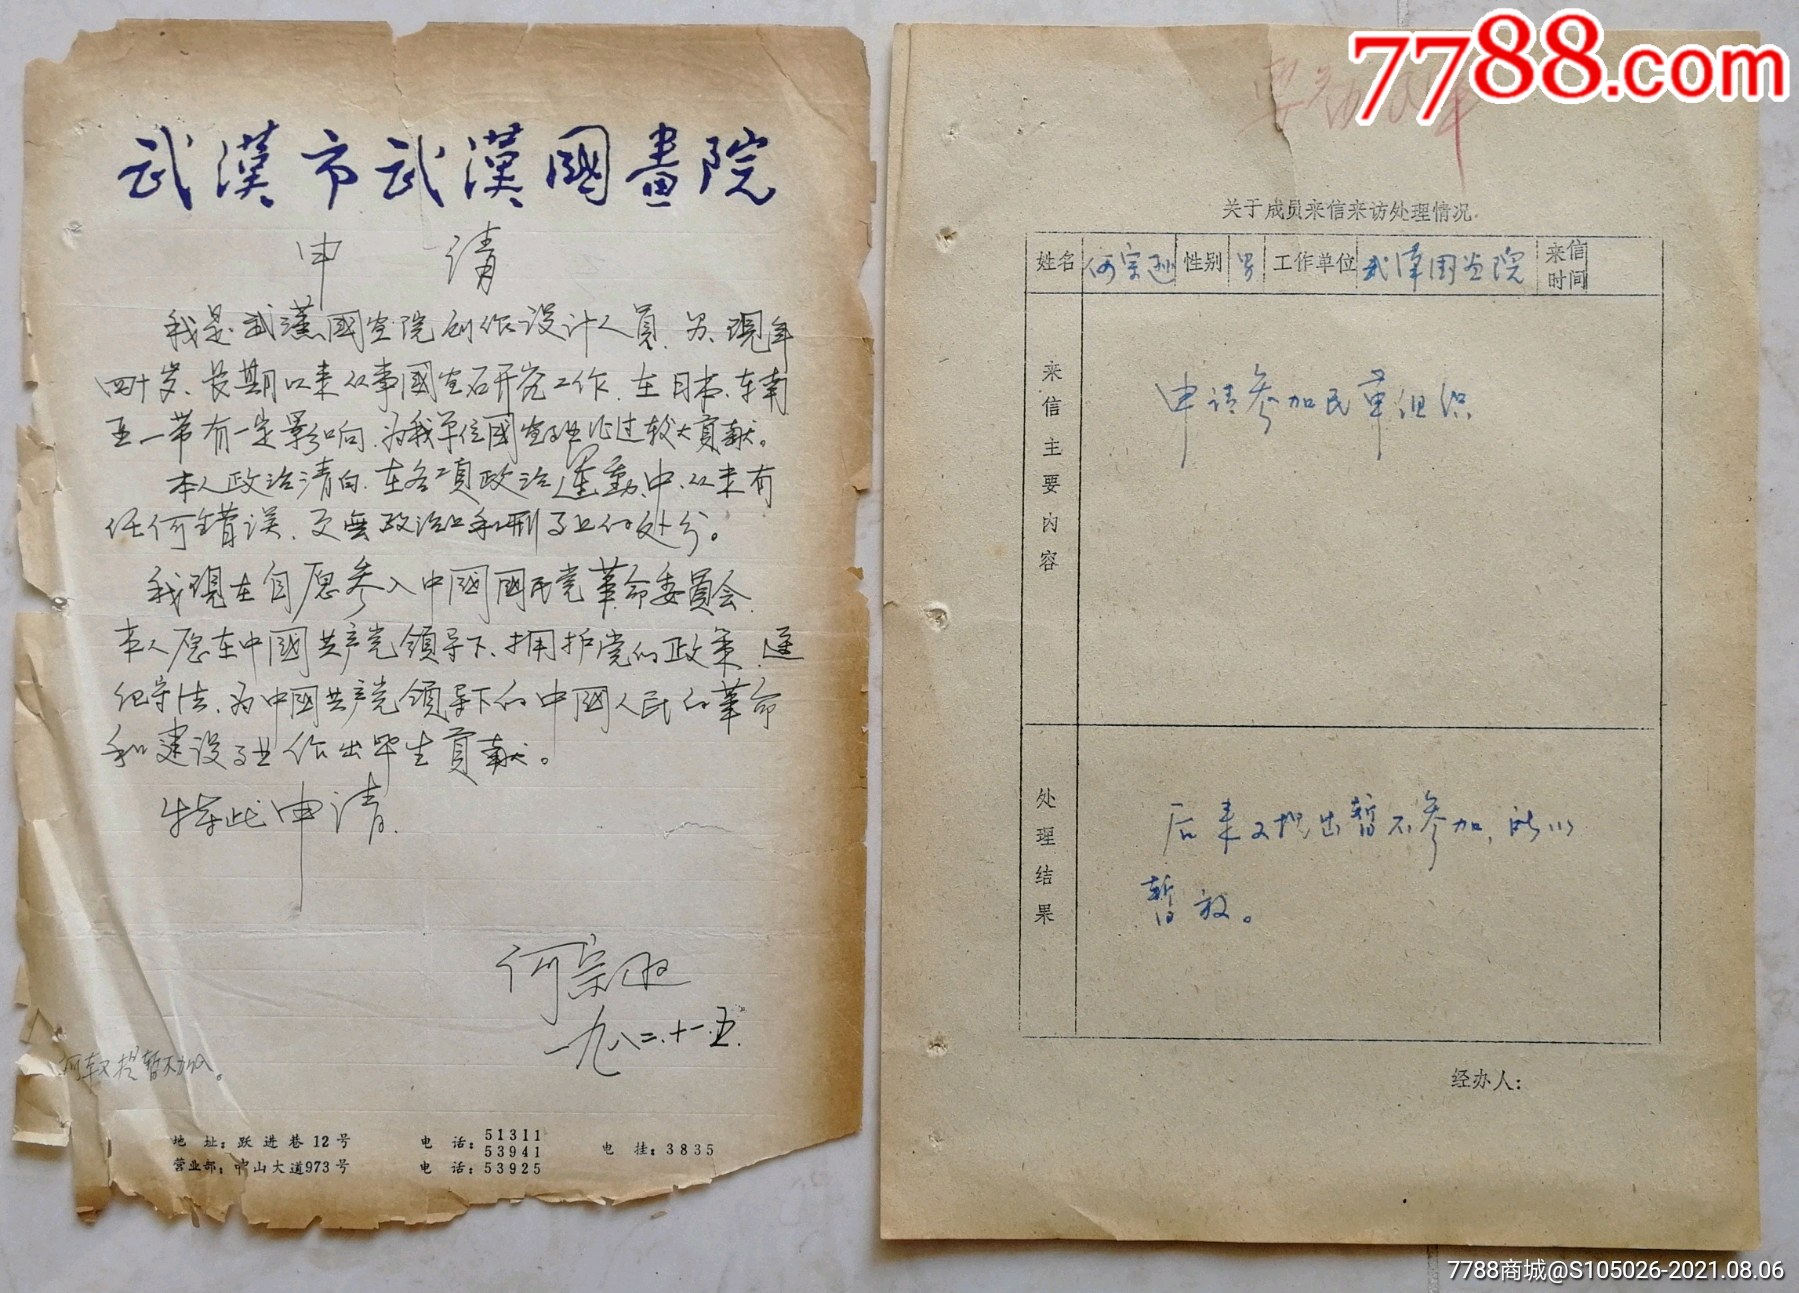 武漢市武漢國畫院
申 请
我是武漢國画院创作设计人員、男、現年
四十岁、長期以来从事國画研究工作、在日本、东南
亚一带有一定影响、为我单位國画出过较大貢献。
本人政治清白、在各项政治運動中、从来有
任何错误、更無政治上和刑事上的处分。
我現在自愿参入中國國民党革命委員会、
本人愿在中國共产党領导下、拥护党的政策、遵
纪守法、为中國共产党領导下的中國人民的革命
和建设事业作出毕生貢献。
特此申请
何宗
一九八二.十一.五.
何 又提暂不加入。
地 址：跃进巷12号
营业部：中山大道973号
电 话：51311
53941
电 话：53925
电 挂：3835
7788.com
关于成员来信来访处理情况
姓名 何宗 性别 男 工作单位 武漢国画院 来信时间
来信主要内容
申请参加民革组织
处理结果
后来又提出暂不参加，所以
暂放。
经办人：
7788商城@S105026-2021.08.06